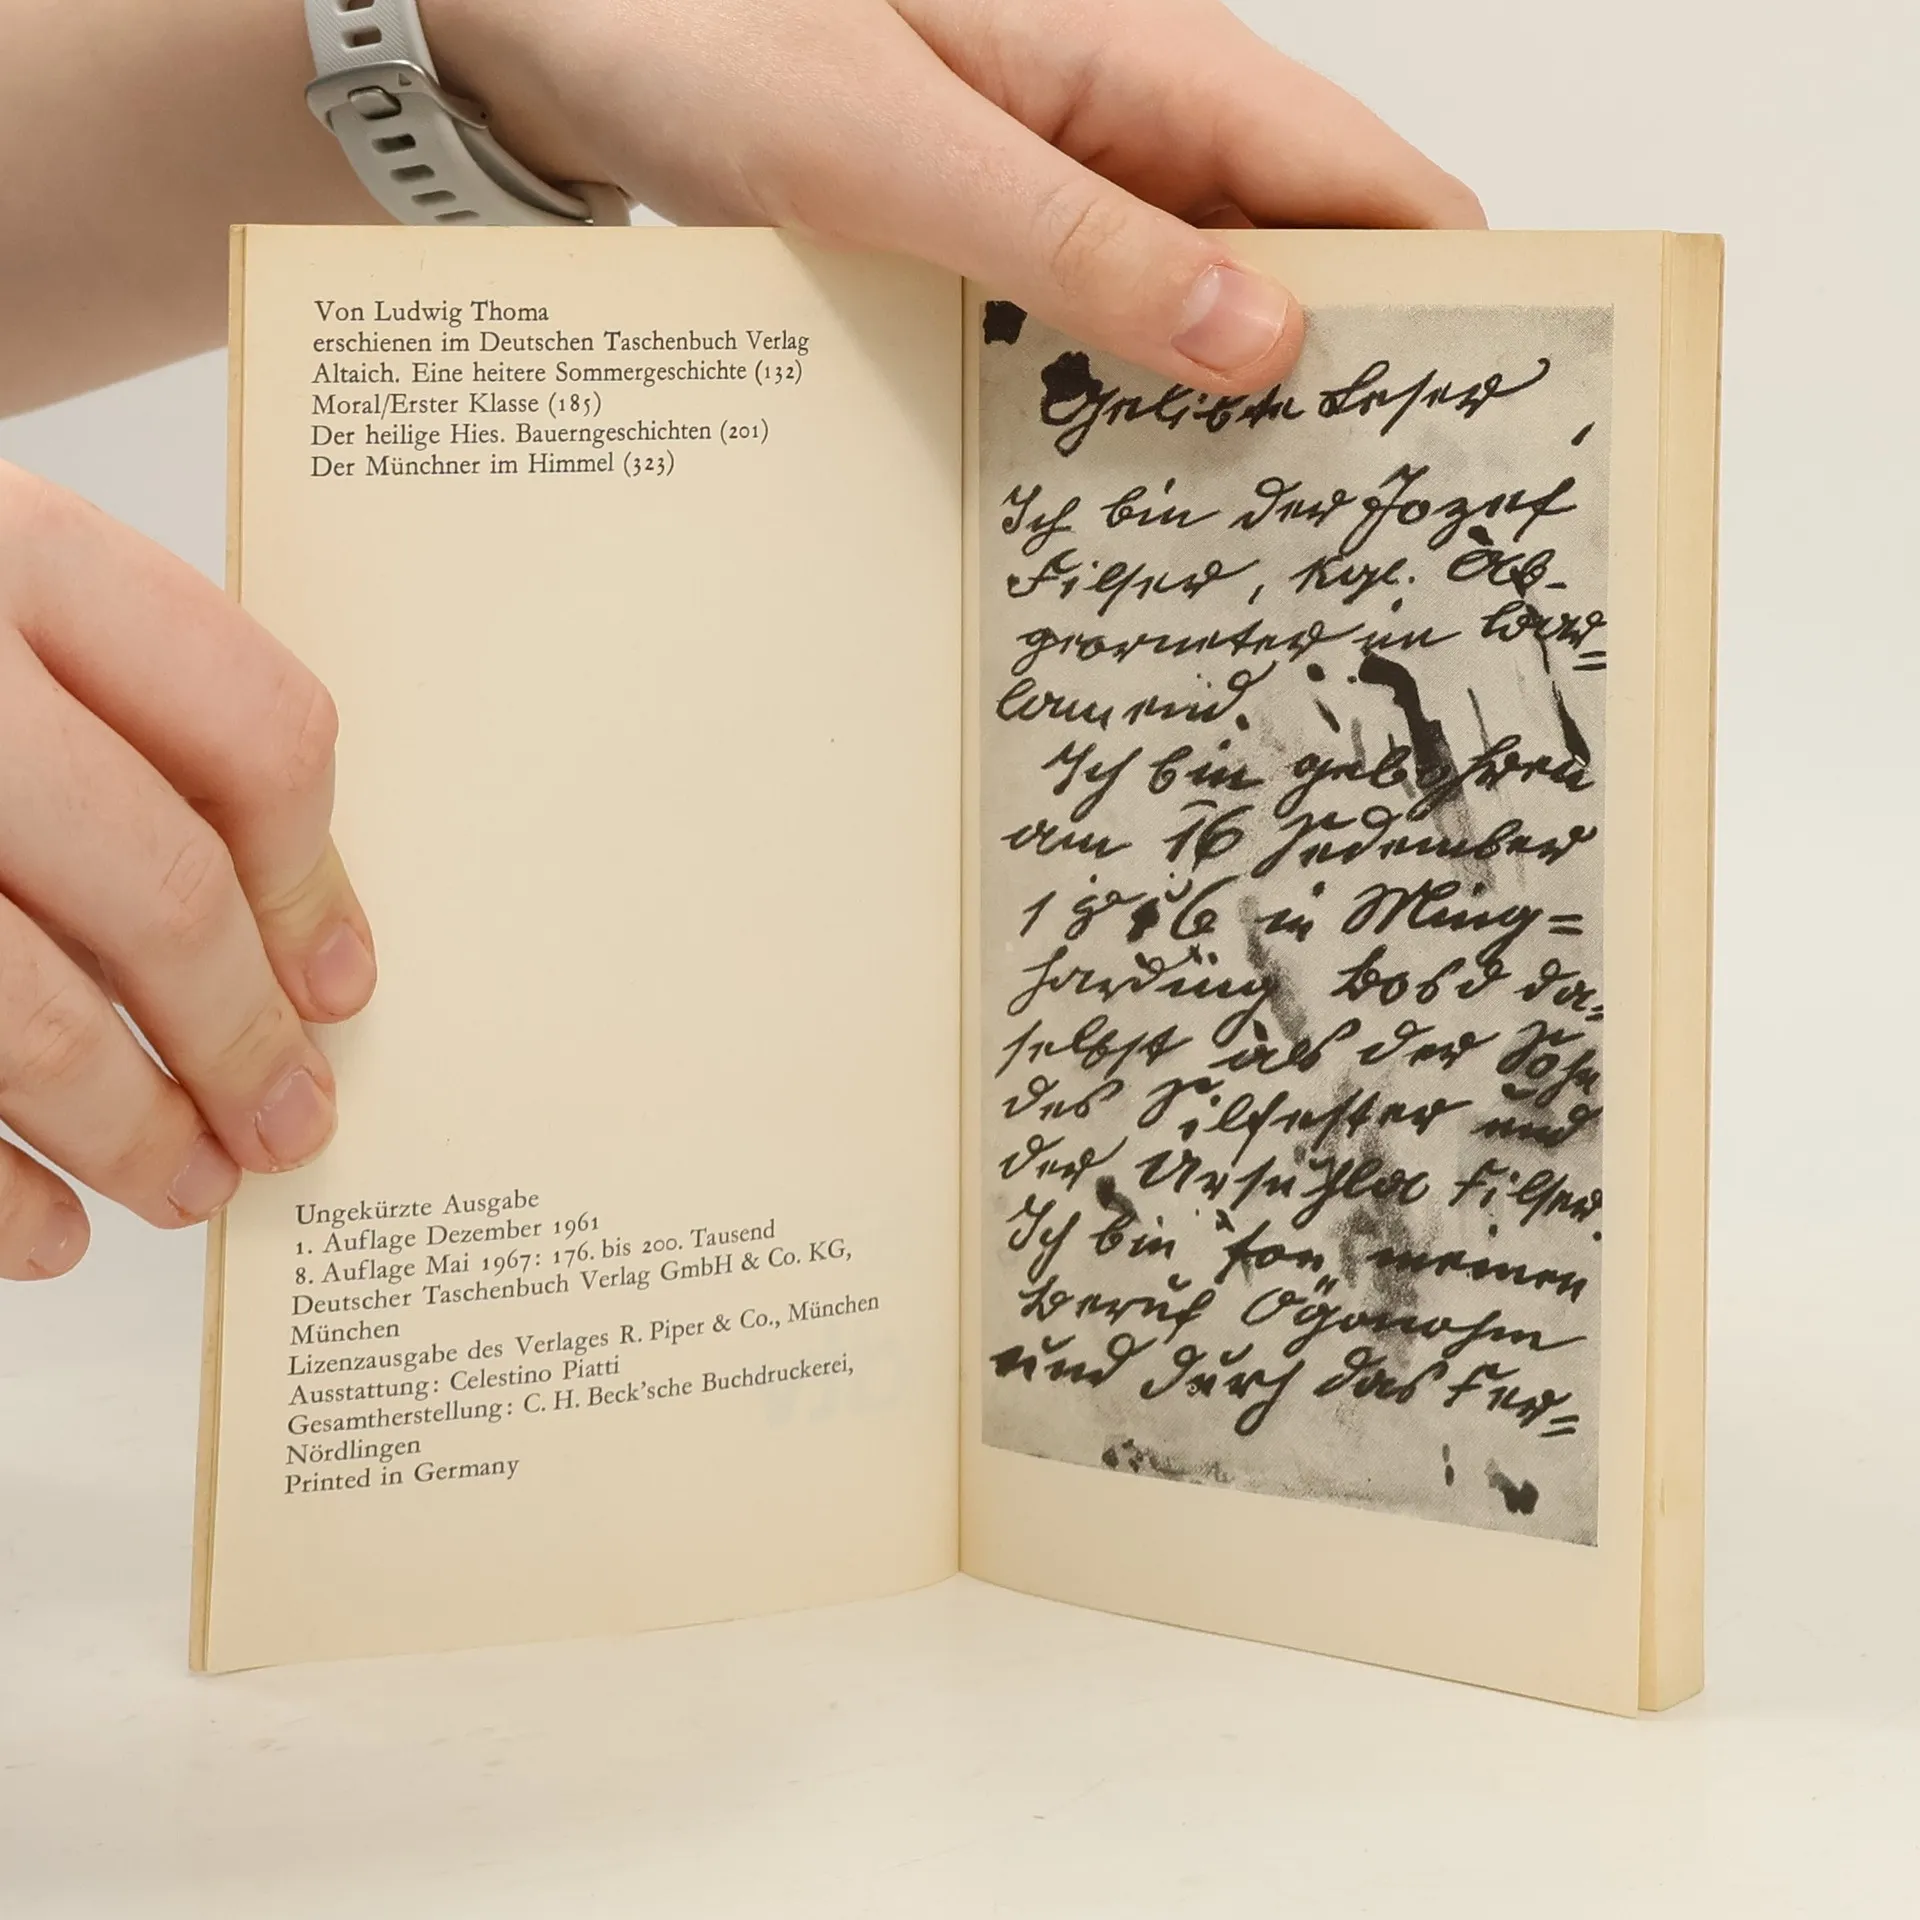 Von Ludwig Thoma
erschienen im Deutschen Taschenbuch Verlag
Altaich. Eine heitere Sommergeschichte (132)
Moral/Erster Klasse (185)
Der heilige Hies. Bauerngeschichten (201)
Der Münchner im Himmel (323)
Ungekürzte Ausgabe
1. Auflage Dezember 1961
8. Auflage Mai 1967: 176. bis 200. Tausend
Deutscher Taschenbuch Verlag GmbH & Co. KG,
München
Lizenzausgabe des Verlages R. Piper & Co., München
Ausstattung: Celestino Piatti
Gesamtherstellung: C. H. Beck'sche Buchdruckerei,
Nördlingen
Printed in Germany
Gelibte Leser,
Ich bin der Jozef
Filser, kgl. Ab-
georneter im Bar=
lamend.
Ich bin gebohren
am 16 Sedember
in Ming=
harding Bosd da=
selbst als der Sohn
des Silfester und
der Ursuhla Filser.
Ich bin fon meinen
Beruf Ögonohm
und durch das Fer=